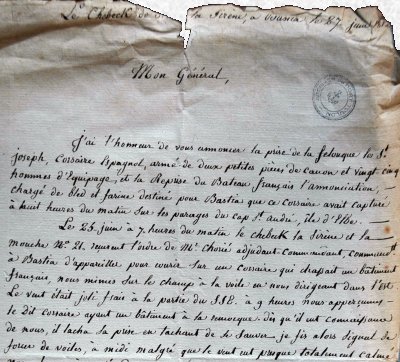 Le Chebeck de la Sirène, a
Mon Général,
J'ai l'honneur de vous annoncer la prise de la felouque la St.
joseph, Corsaire Espagnol, armé de deux petites pièces de canon et vingt cinq
hommes d'Equipage, et la Reprise du Bateau français l'annonciation,
chargé de Bled et farine destiné pour Bastia que ce corsaire avait capturé
à huit heures du matin sur les parages du cap St. andré, île d'Elbe.
Le 25 juin à 7 heures du matin le chebeck la Sirène et la
mouche No. 21, reçurent l'ordre de Mr. Chorié adjudant-Commandant, Commandt.
à Bastia d'appareiller pour courir sur un corsaire qui chassait un bâtiment
français, nous mîmes sur le champ à la voile en nous dirigeant dans l'est
Le vent était joli frais à la partie du SSE. à 9 heures nous apperçumes
le dit corsaire ayant un bâtiment à la remorque dès qu'il eut connaissance
de nous, il lacha sa prise en tachant de se sauver. je fis alors signal de
forcer de voiles, à midi malgré que le vent eut presque totalement calmé